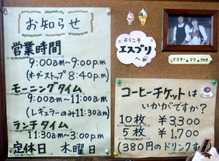 お知らせ
営業時間
9:00a.m～9:00p.m
(オーダーストップ8:40p.m)
モーニングタイム
9:00a.m～11:30a.m
(レギュラーのみ11:30a.m)
ランチタイム
11:30a.m～3:00p.m
定休日 木曜日
ようこそ
エスプリ
へ
コーヒーチケットは
いかがですか?
10枚 ¥3,300
5枚 ¥1,700
(380円のドリンク